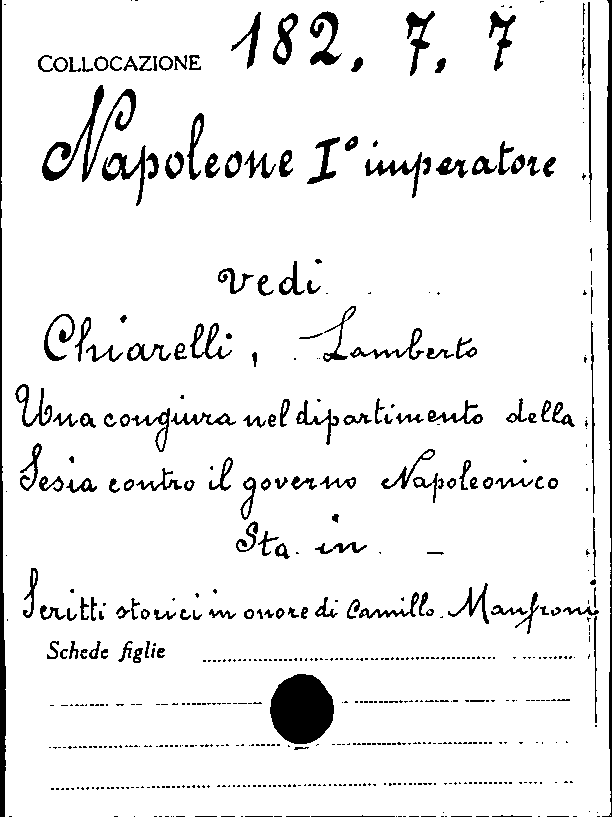 COLLOCAZIONE 182. 7. 7
Napoleone I° imperatore
vedi
Chiarelli, Lamberto
Una congiura nel dipartimento della
Sesia contro il governo Napoleonico
Sta in
Scritti storici in onore di Camillo Manfroni
Schede figlie